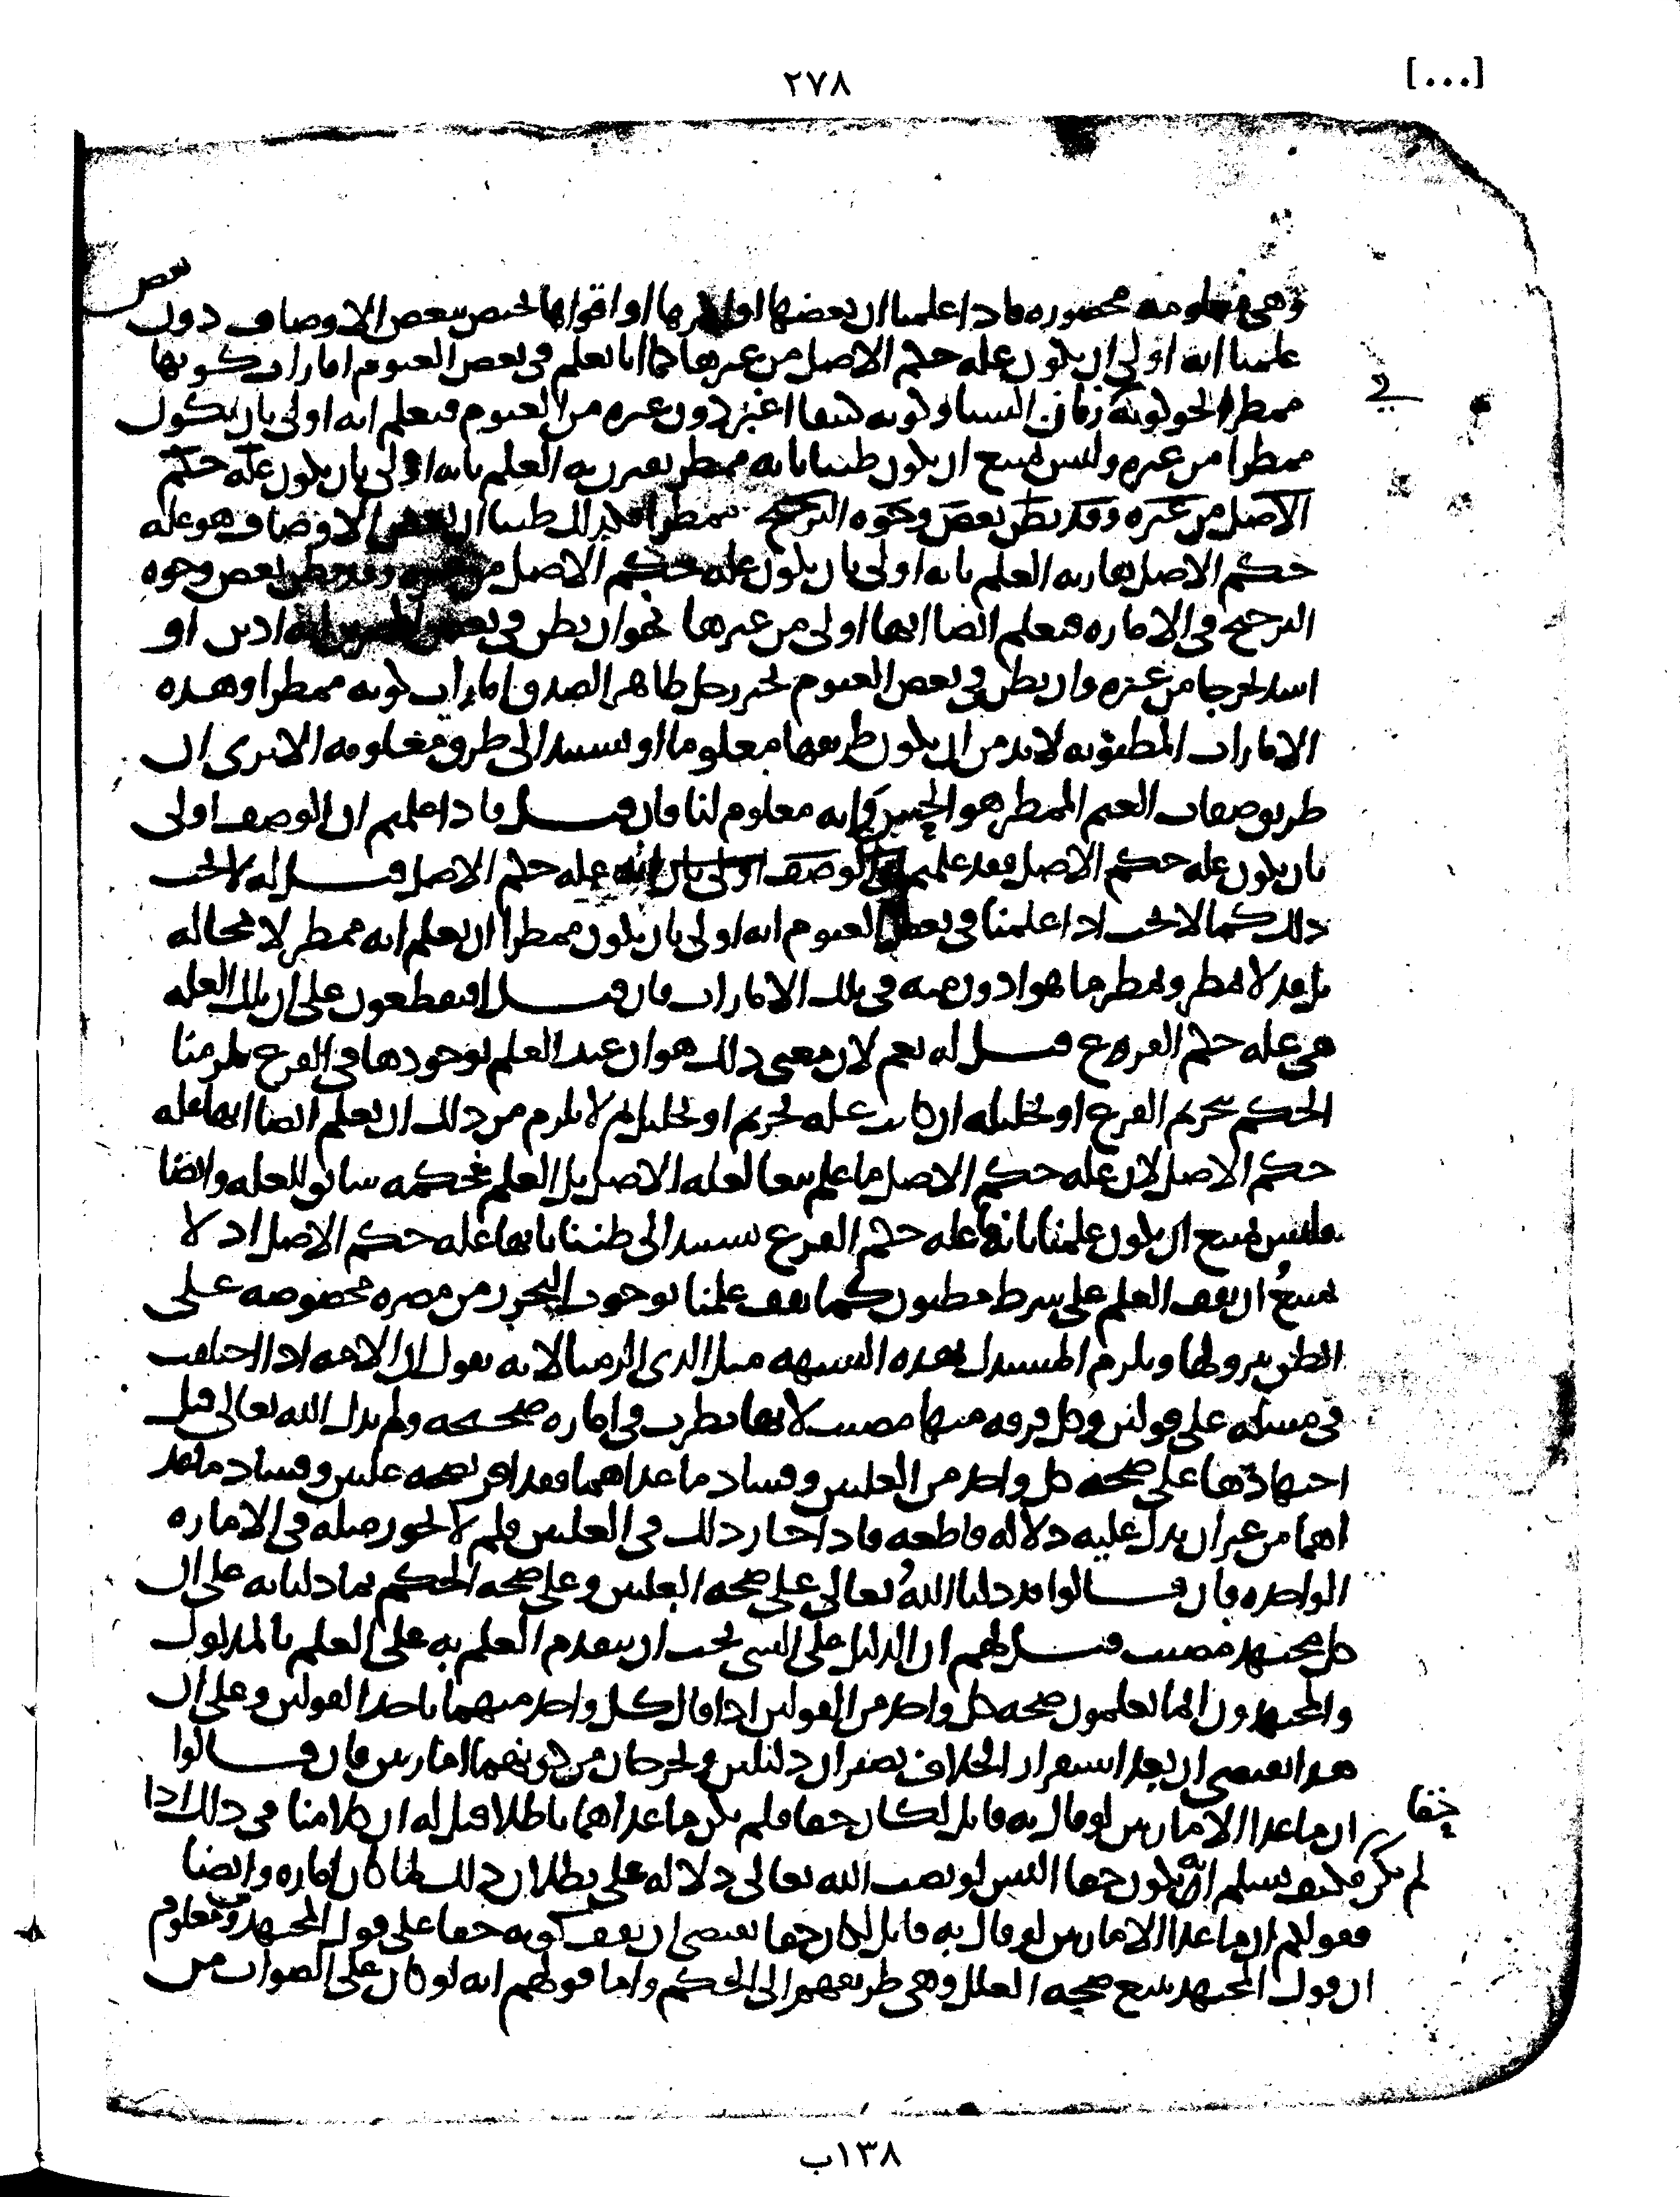 [...]
٢٧٨
بعض
وهي معلومة محصورة فاذا علمنا ان بعضها او اكثرها او اقواها يختص ببعض الاوصاف دون
علمنا انه اولى ان يكون علة حكم الاصل من غيرها كما انا نعلم في بعض الغيوم امارات كونها
ممطرا نحو كونه زمان الشتاء وكونه كثيفا اغبر دون غيره من الغيوم فنعلم انه اولى بان يكون
ممطرا من غيره وليس يمتنع ان يكون ظننا بانه ممطر يقترن به العلم بانه اولى بان يكون علة حكم
الاصل من غيره وقد نظن بعض وجوه الترجيح ممطرا فكذلك ظننا ان بعض الاوصاف هو علة
حكم الاصل يقارنه العلم بانه اولى بان يكون علة حكم الاصل من غيره وقد نظن بعض وجوه
الترجيح في الامارة فنعلم ايضا انها اولى من غيرها نحو ان نظن في بعض انه ادين او
اشد تحرجا من غيره وان نظن في بعض الغيوم بخبر رجل ظاهر الصدق امارات كونه ممطرا وهذه
الامارات المظنونة لا بد من ان يكون طريقها معلوما او تستند الى طرق معلومة الا ترى ان
طريق صفات الغيم الممطر هو الحس وانه معلوم لنا فان قيل فاذا علمتم ان الوصف اولى
بان يكون علة حكم الاصل فقد علمتم ان الوصف اولى بان انه علة حكم الاصل قيل له لا يجب
ذلك كما لا يجب اذا علمنا في بعض الغيوم انه اولى بان يكون ممطرا ان نعلم انه ممطر لا محالة
بل قد لا يمطر ويمطر ما هو ادون منه في تلك الامارات فان قيل افتقطعون على ان تلك العلة
هي علة حكم الفرع قيل له نعم لان معنى ذلك هو ان عند العلم بوجودها في الفرع يلزمنا
الحكم بتحريم الفرع او تحليله ان كانت علة تحريم او تحليل ثم لا يلزم من ذلك ان نعلم ايضا انها علة
حكم الاصل لان علة حكم الاصل ما علم تبعا لعلة الاصل بل العلم بحكمه سابق للعلة وايضا
فليس يمتنع ان يكون علمنا بانها علة حكم الفرع تستند الى ظننا بانها علة حكم الاصل اذ لا
يمتنع ان يقف العلم على شرط مظنون كما يقف علمنا بوجوب التحرز من مضرة مخصوصة على
الظن بنزولها ويلزم المستدل بهذه الشبهة مثل الذي الزمنا لانه يقول ان الامة اذا اختلفت
في مسئلة على قولين وكل فرقة منها مصيب لانها نظرت في امارة صحيحة ولم يدل الله تعالى قبل
اجتهادها على صحة كل واحد من العلتين وفساد ما عداهما فقد اقر بصحة علتين وفساد ما عد
اهما من غير ان يدل عليه دلالة قاطعة فاذا جاز ذلك في العلتين فلم لا يجوز مثله في الامارة
الواحدة فان قالوا قد دلنا الله تعالى على صحة العلتين وعلى صحة الحكم بما دلنا به على ان
كل مجتهد مصيب قيل لهم ان الدليل على الشي يجب ان يتقدم العلم به على العلم بالمدلول
والمجتهدون انما يعلمون صحة كل واحد من القولين اذا قال كل واحد منهما باحد القولين وعلى ان
هذا يقتضي ان بعد استقرار الخلاف تصيران دلتين ويخرجان من كونهما امارتين فان قالوا
ان ما عدا الامارتين لو قال به قايل لكان حقا فلم يكن ما عداهما باطلا قيل له ان كلامنا في ذلك اذا
حقا
لم يكن فكيف نسلم انه يكون حقا اليس لو نصب الله تعالى دلالة على بطلان ذلك لما كان امارة وايضا
فقولهم ان ما عدا الامارتين لو قال به قايل لكان حقا يقتضي ان يقف كونه حقا على قول المجتهد ومعلوم
ان قول المجتهد يتبع صحة العلل وهي طريقهم الى الحكم واما قولهم انه لو كان على الصواب من
١٣٨ب